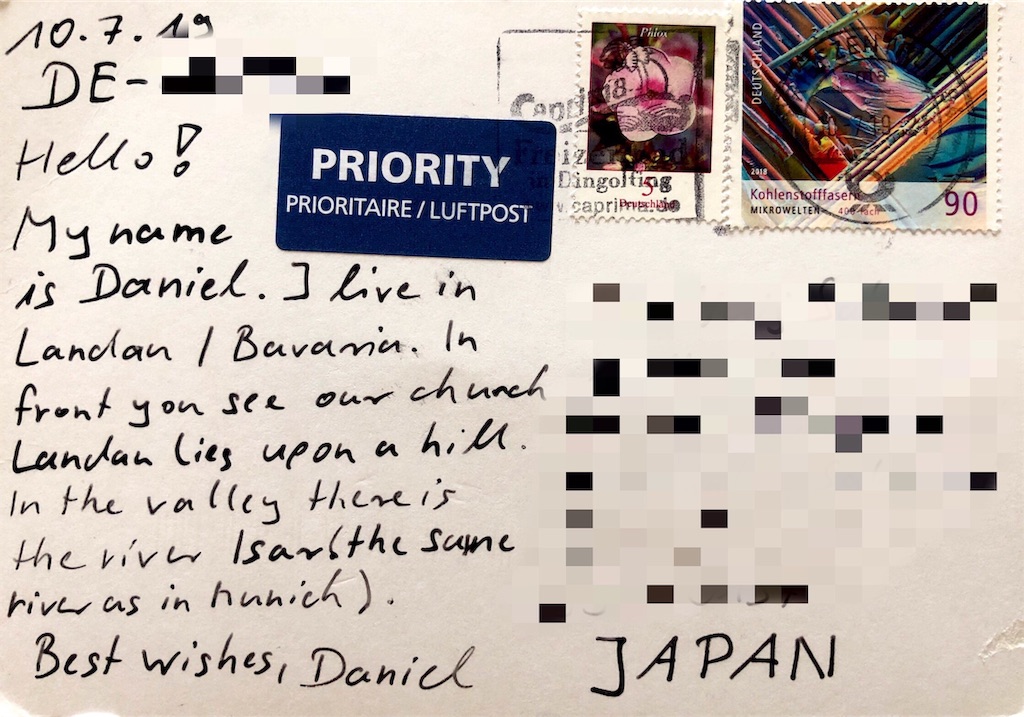 10.7.19
DE-
Hello!
My name
is Daniel. I live in
Landau / Bavaria. In
front you see our church
Landau lies upon a hill.
In the valley there is
the river Isar (the same
river as in Munich).
Best wishes, Daniel
PRIORITY
PRIORITAIRE / LUFTPOST
Phlox
5
Deutschland
in Dingolfing
DEUTSCHLAND
2018
Kohlenstofffasern
MIKROWELTEN – 400-fach
90
JAPAN